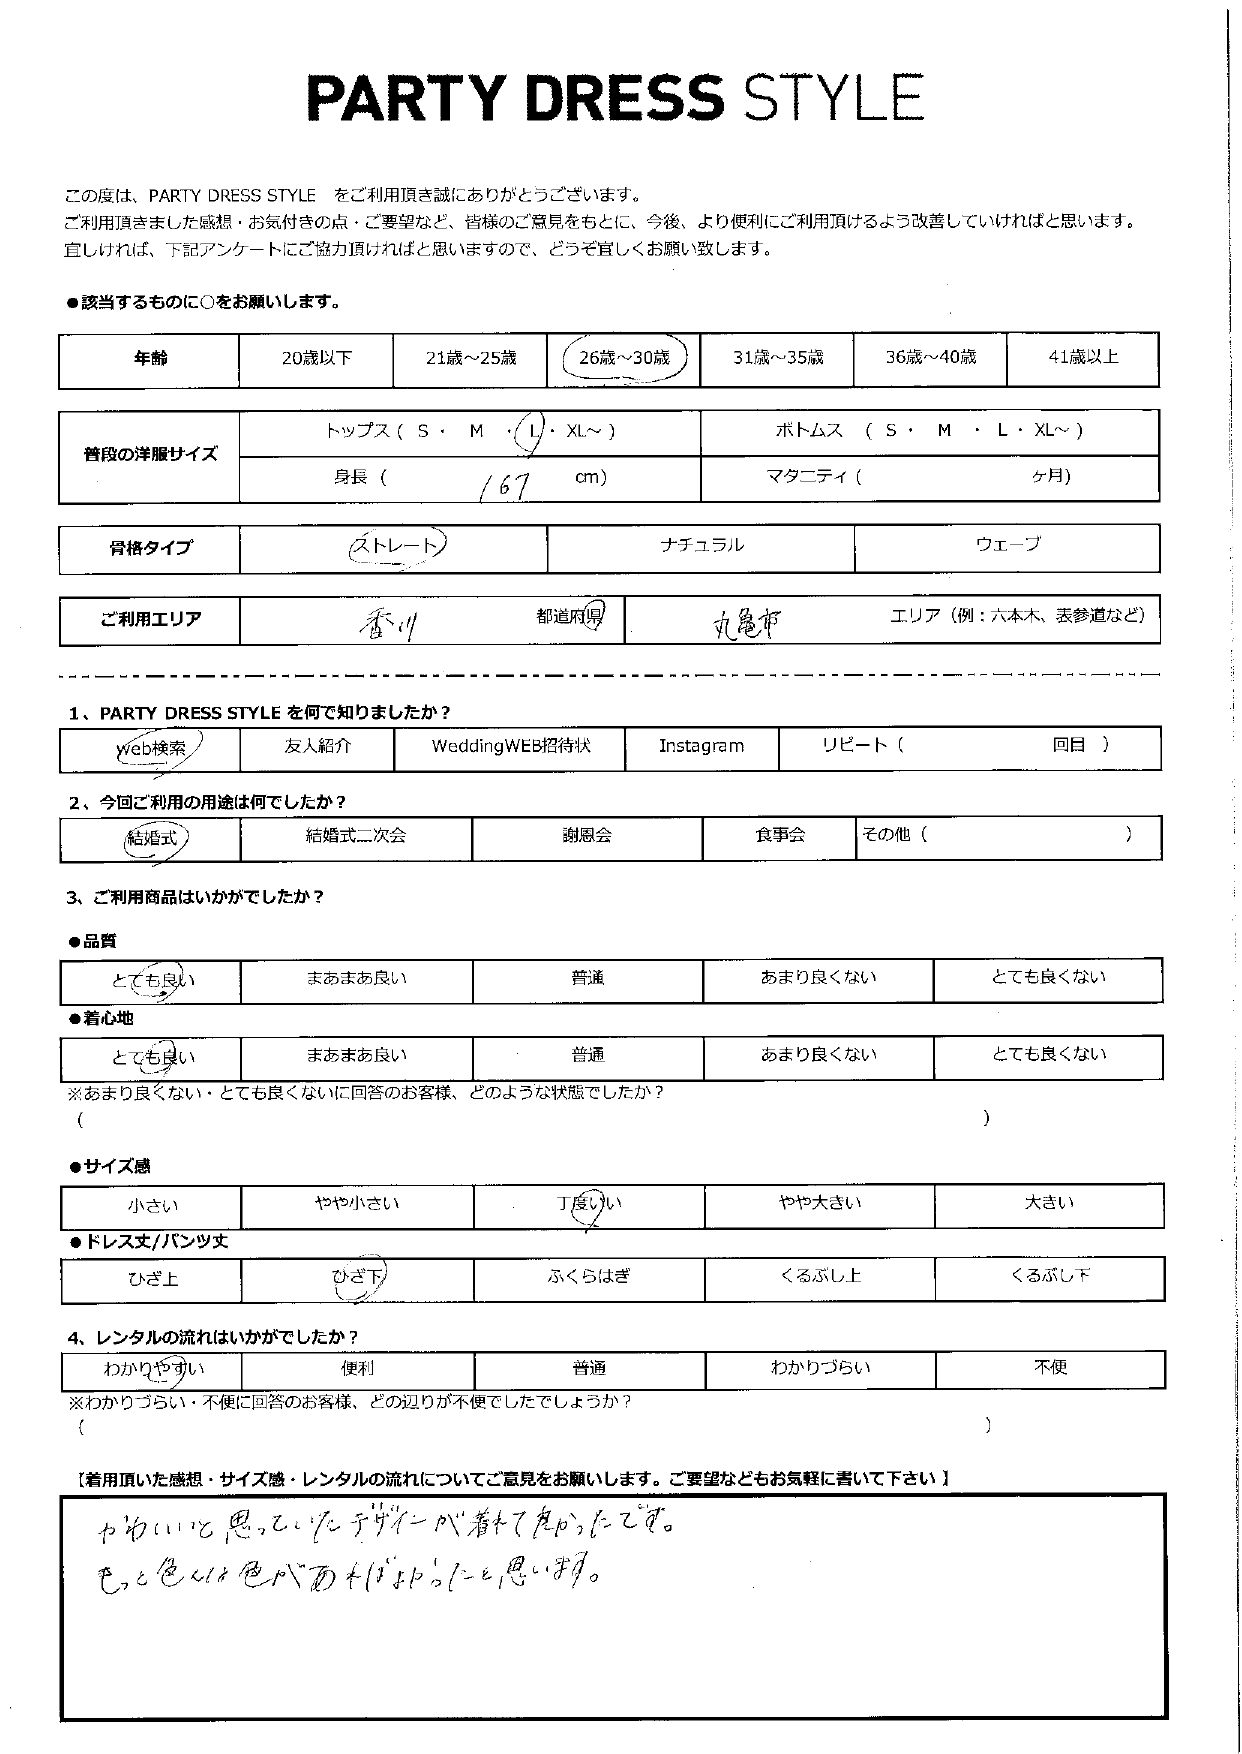 PARTY DRESS STYLE
この度は、PARTY DRESS STYLE をご利用頂き誠にありがとうございます。
ご利用頂きました感想・お気付きの点・ご要望など、皆様のご意見をもとに、今後、より便利にご利用頂けるよう改善していければと思います。
宜しければ、下記アンケートにご協力頂ければと思いますので、どうぞ宜しくお願い致します。
●該当するものに○をお願いします。
年齢 20歳以下 21歳～25歳 26歳～30歳 31歳～35歳 36歳～40歳 41歳以上
普段の洋服サイズ
トップス ( S ・ M ・ L ・ XL～ ) ボトムス ( S ・ M ・ L ・ XL～ )
身長 ( 167 cm) マタニティ ( ヶ月)
骨格タイプ ストレート ナチュラル ウェーブ
ご利用エリア 香川 都道府県 丸亀市 エリア（例：六本木、表参道など）
1、PARTY DRESS STYLE を何で知りましたか？
web検索 友人紹介 WeddingWEB招待状 Instagram リピート ( 回目 )
2、今回ご利用の用途は何でしたか？
結婚式 結婚式二次会 謝恩会 食事会 その他 ( )
3、ご利用商品はいかがでしたか？
●品質
とても良い まあまあ良い 普通 あまり良くない とても良くない
●着心地
とても良い まあまあ良い 普通 あまり良くない とても良くない
※あまり良くない・とても良くないに回答のお客様、どのような状態でしたか？
( )
●サイズ感
小さい やや小さい 丁度いい やや大きい 大きい
●ドレス丈/パンツ丈
ひざ上 ひざ下 ふくらはぎ くるぶし上 くるぶし下
4、レンタルの流れはいかがでしたか？
わかりやすい 便利 普通 わかりづらい 不便
※わかりづらい・不便に回答のお客様、どの辺りが不便でしたでしょうか？
( )
【着用頂いた感想・サイズ感・レンタルの流れについてご意見をお願いします。ご要望などもお気軽に書いて下さい 】
かわいいと思っていたデザインが着れて良かったです。
もっと色んな色があればよかったと思います。